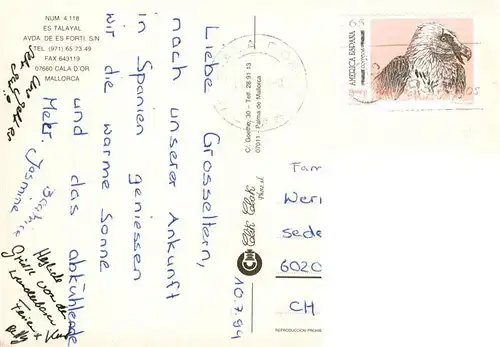 NUM. 4.118
ES TALAYAL
AVDA. DE ES FORTI, S/N
TEL (971) 65 73 49
FAX 643119
07660 CALA D'OR
MALLORCA
Liebe Grosseltern,
nach unserer Ankunft
in Spanien geniessen
wir die warme Sonne
und das abkühlende
Mehr.
Jasmine
Herzliche
Grüsse von den
wunderbaren
Ferien
10.7.94
C/. Goethe, 30 - Telf. 28 91 13
07011 - Palma de Mallorca
Clik Clak
REPRODUCCION PROHIB
AMERICA ESPAÑA
Fam
Weri
sede
6020
CH